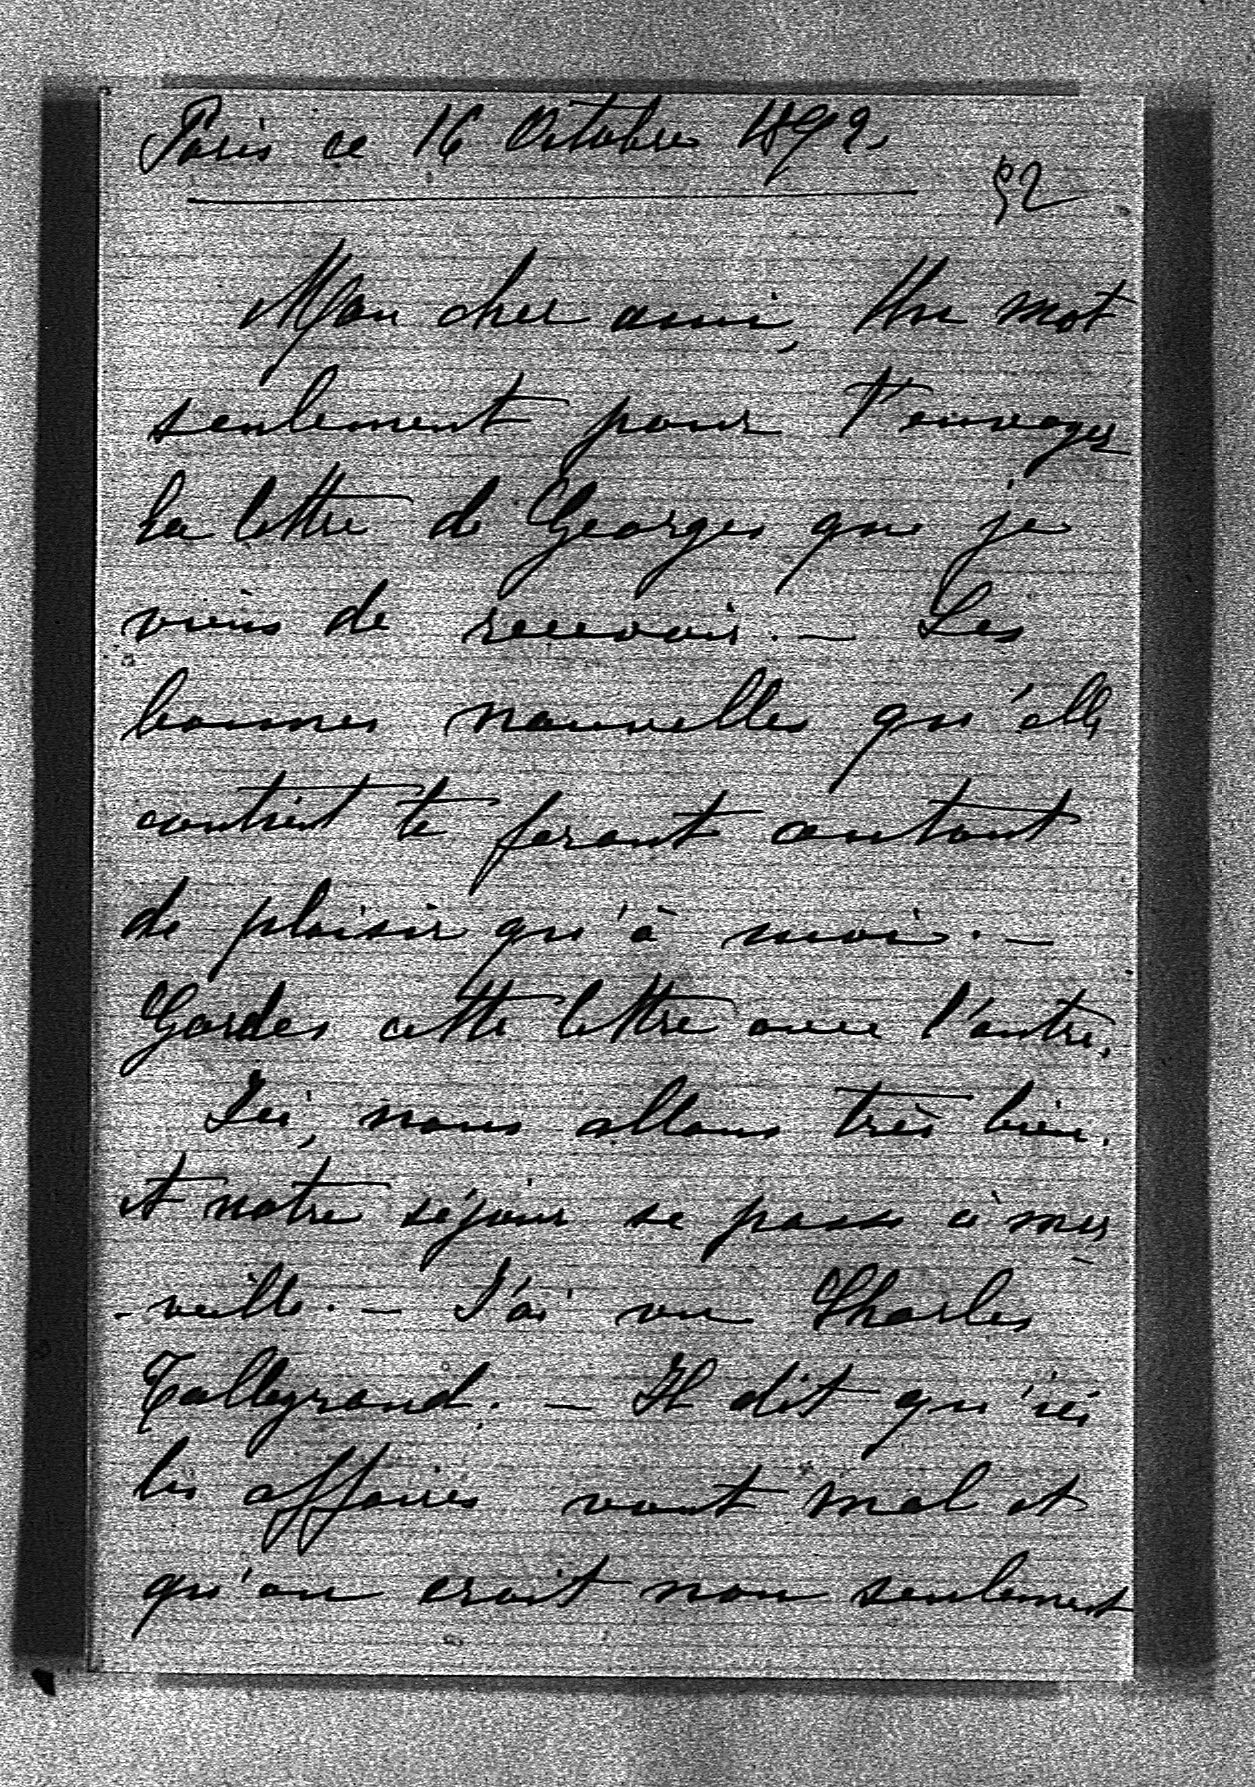 Paris ce 16 Octobre 1892.
52
Mon cher ami, Un mot
seulement pour t'envoyer
la lettre de Georges que je
viens de recevoir. — Les
bonnes nouvelles qu'elle
contient te feront autant
de plaisir qu'à moi. —
Gardes cette lettre avec l'autre.
Ici, nous allons très bien.
et notre séjour se passe à mer
-veille. — J'ai vu Charles
Talleyrand. — Il dit qu'ici
les affaires vont mal et
qu'on croit non seulement